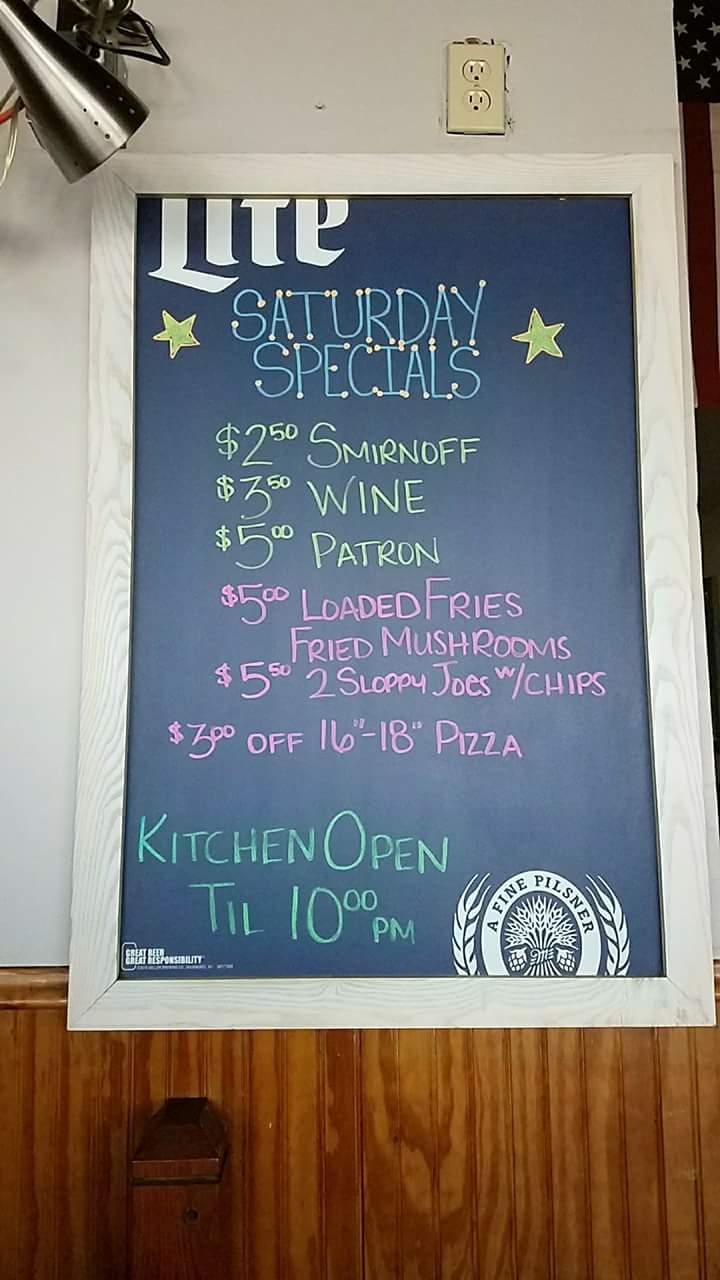 Lite
SATURDAY
SPECIALS
$2.50 SMIRNOFF
$3.50 WINE
$5.00 PATRON
$5.00 LOADED FRIES
FRIED MUSHROOMS
$5.50 2 SLOPPY JOES W/CHIPS
$3.00 OFF 16"-18" PIZZA
KITCHEN OPEN
TIL 10:00 PM
A FINE PILSNER
GREAT BEER
GREAT RESPONSIBILITY